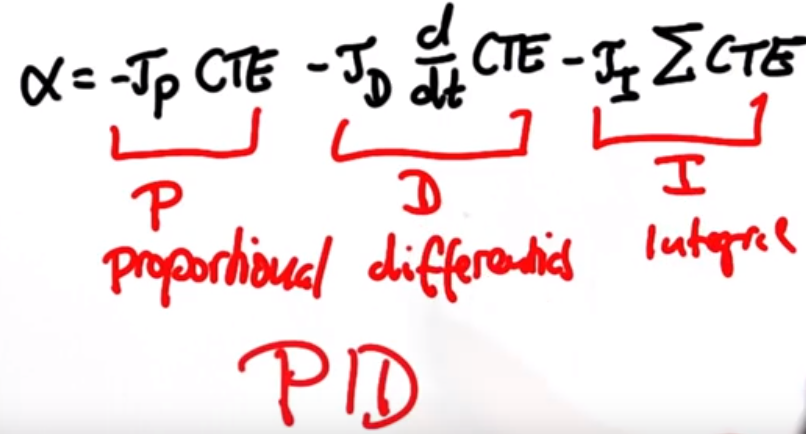 α = -J_P CTE - J_D d/dt CTE - J_I Σ CTE
P D I
proportional differential integral
PID